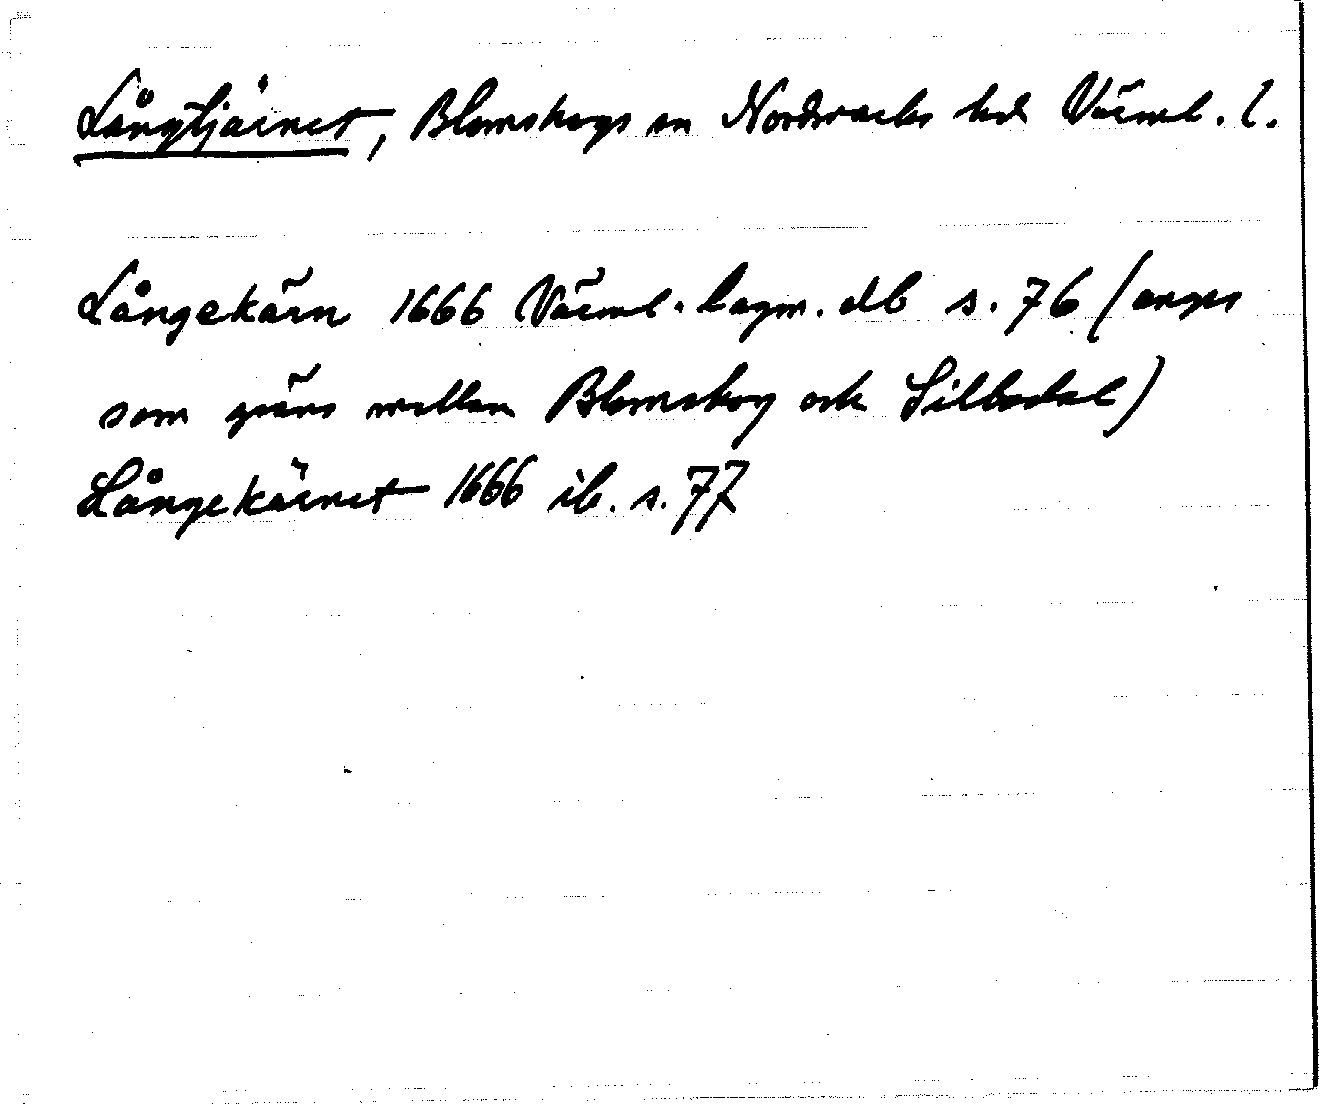 Långtjärnet, Blomskogs sn Nordmarks hd Värml. l.
Långekärn 1666 Värml. lagm. db s. 76 (anges
som gräns mellan Blomskog och Sillbodal)
Långekärnet 1666 ib. s. 77